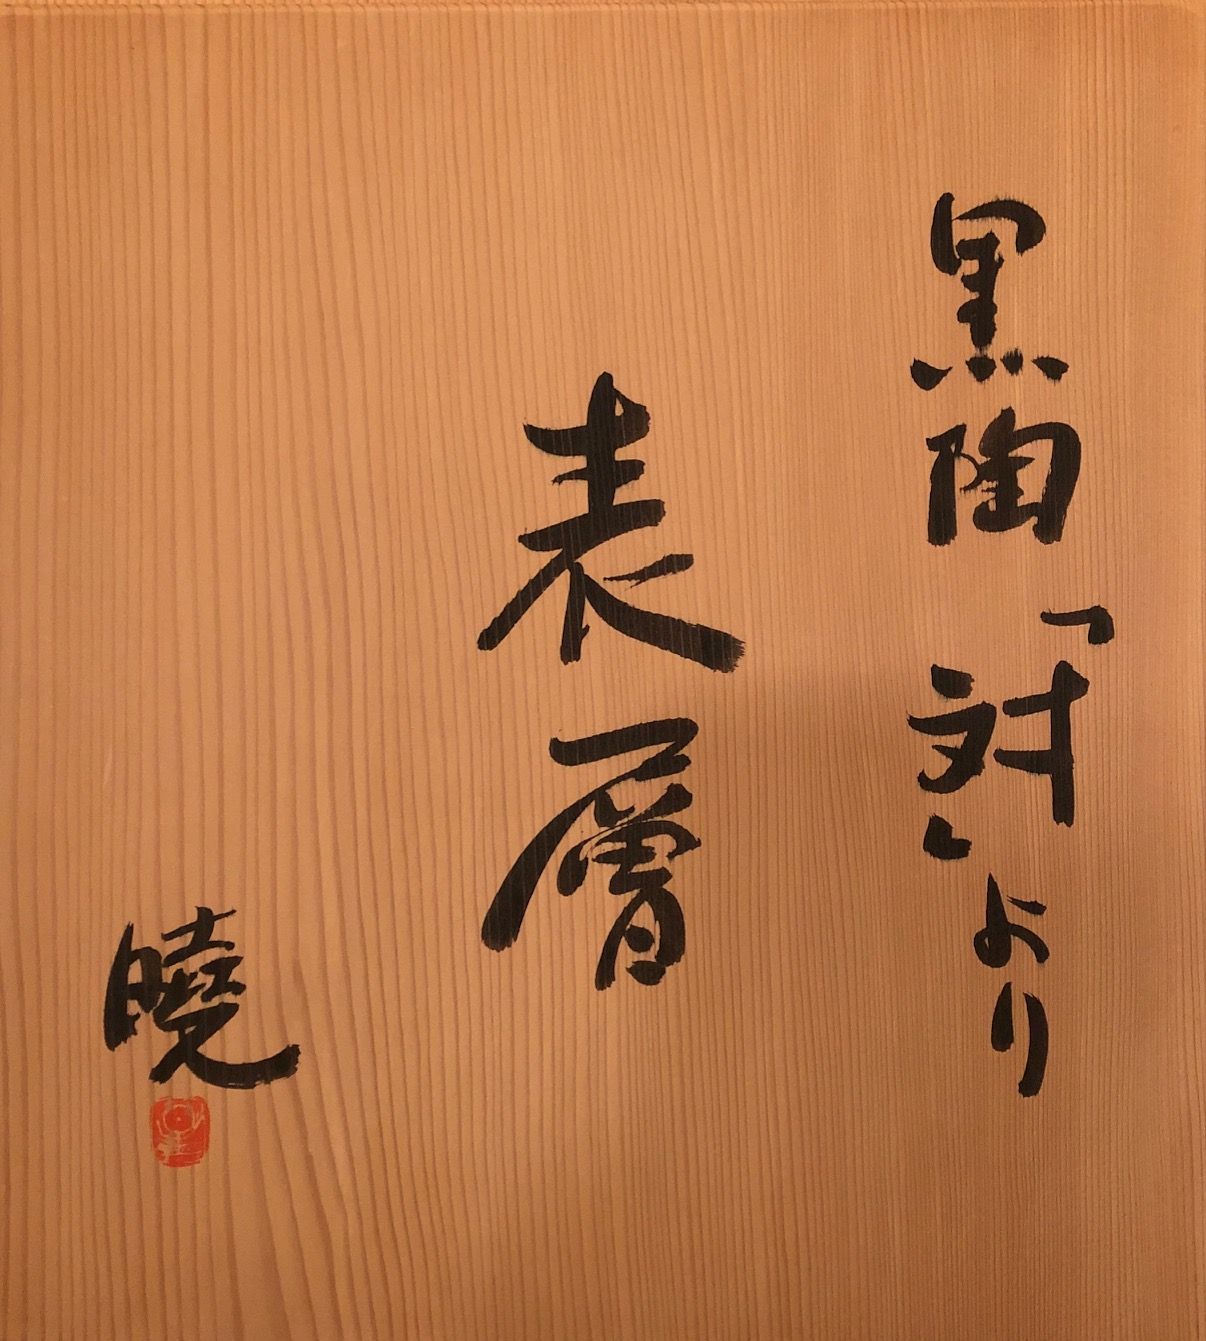 黒陶「対」より
表層
曉